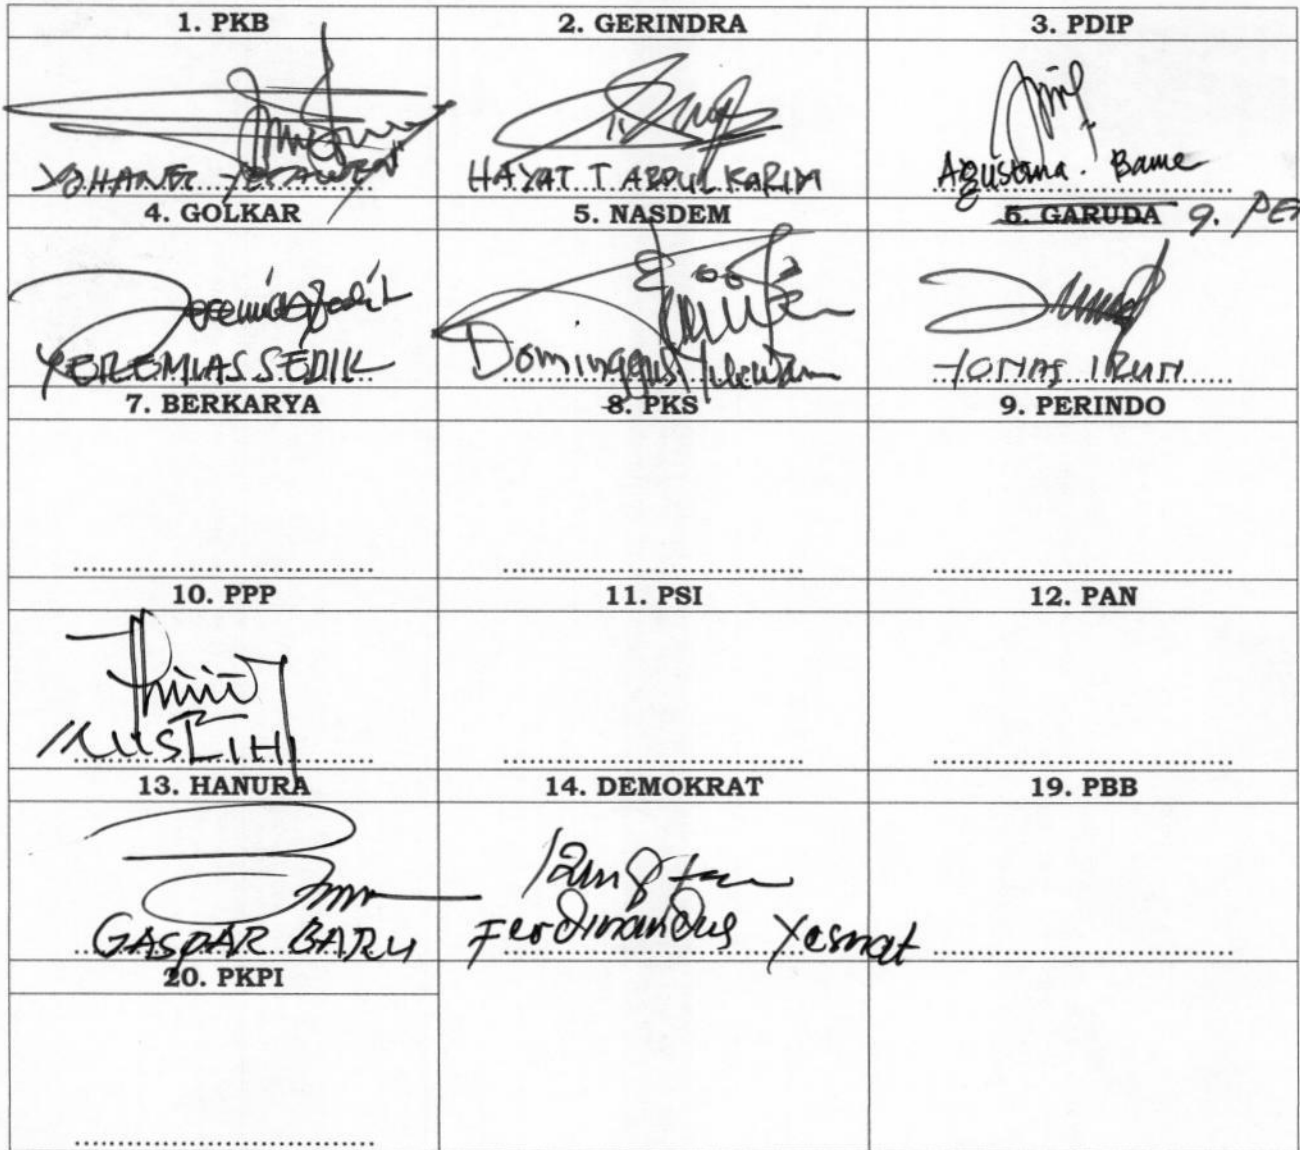 1. PKB 2. GERINDRA 3. PDIP
HAYAT T ABDUL KARIM Agustina. Bame
4. GOLKAR 5. NASDEM 6. GARUDA 9. PER
YEREMIAS SEDIK Dominggus
7. BERKARYA 8. PKS 9. PERINDO
10. PPP 11. PSI 12. PAN
MUSLIHI
13. HANURA 14. DEMOKRAT 19. PBB
GASPAR BARU Ferdinandus Yesnat
20. PKPI